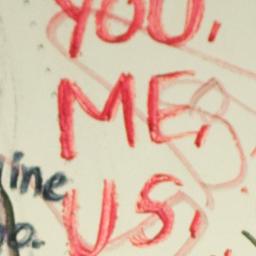 YOU,
ME,
US,
ine
o.